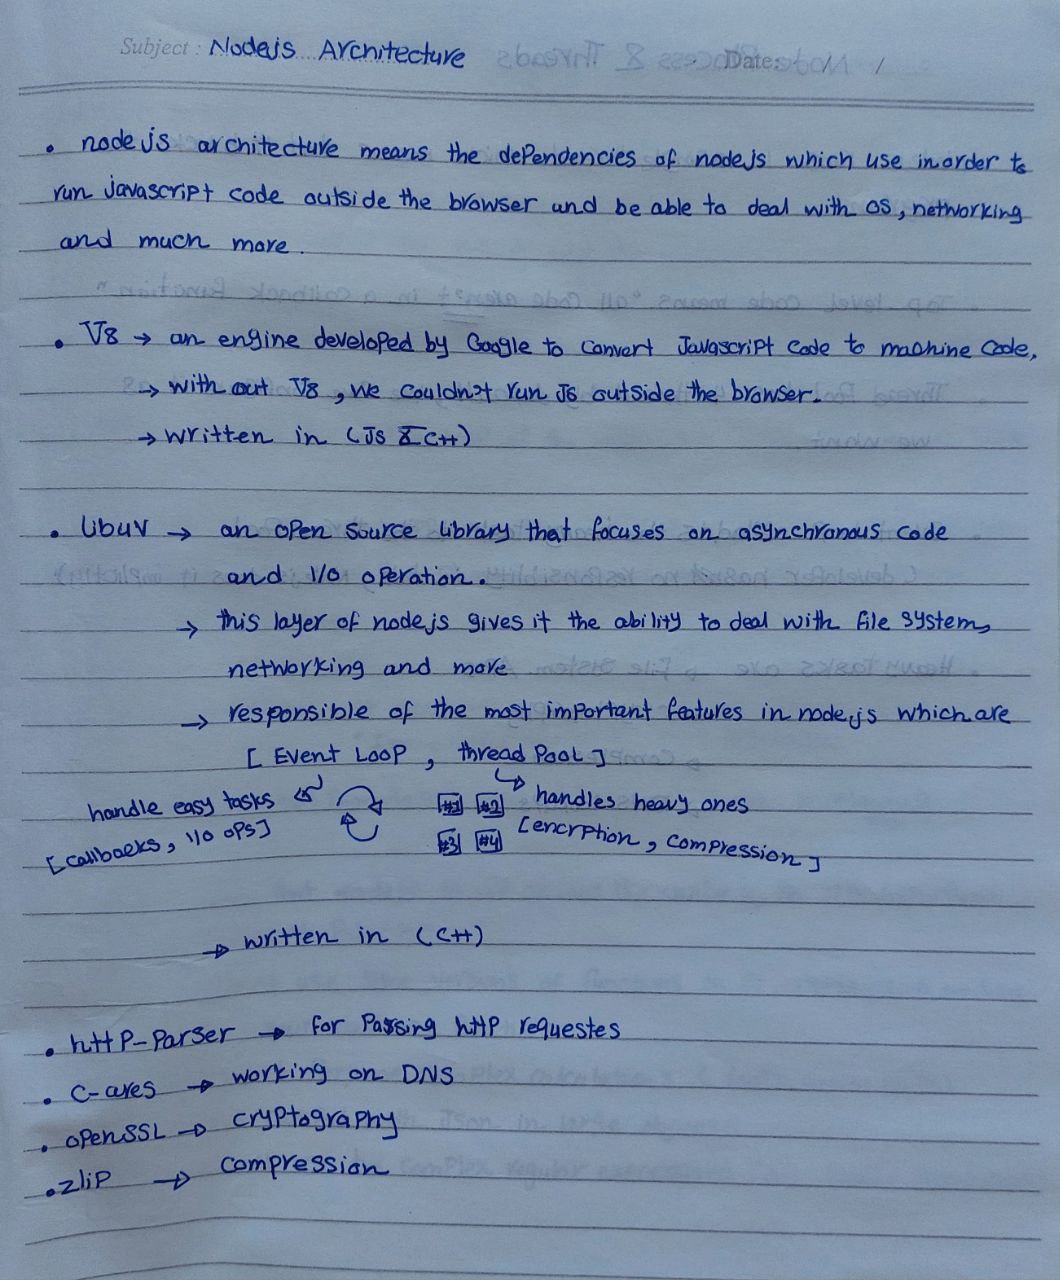 Subject : Nodejs Architecture Date: / /
• node js architecture means the dependencies of nodejs which use inorder to
run javascript code outside the browser and be able to deal with OS, networking
and much more.
• V8 → an engine developed by Google to convert Javascript code to machine code,
→ with out V8, we couldn't run JS outside the browser.
→ written in (JS & C++)
• libuv → an open source library that focuses on asynchronous code
and I/O operation.
→ this layer of nodejs gives it the ability to deal with file system,
networking and more
→ responsible of the most important features in node.js which are
[ Event Loop, thread Pool ]
handle easy tasks
[callbacks, I/O ops]
#1 #2
#3 #4
handles heavy ones
[encrption, compression]
→ written in (C++)
• http-parser → for Passing http requestes
• C-ares → working on DNS
• openSSL → cryptography
• zlip → compression